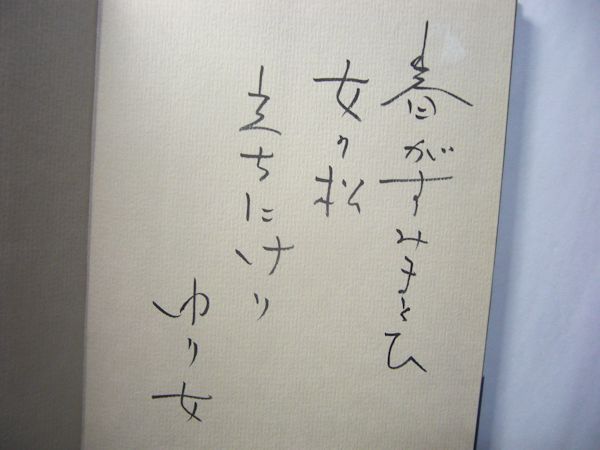 春がすみまとひ
女の松
立ちにけり
ゆり女